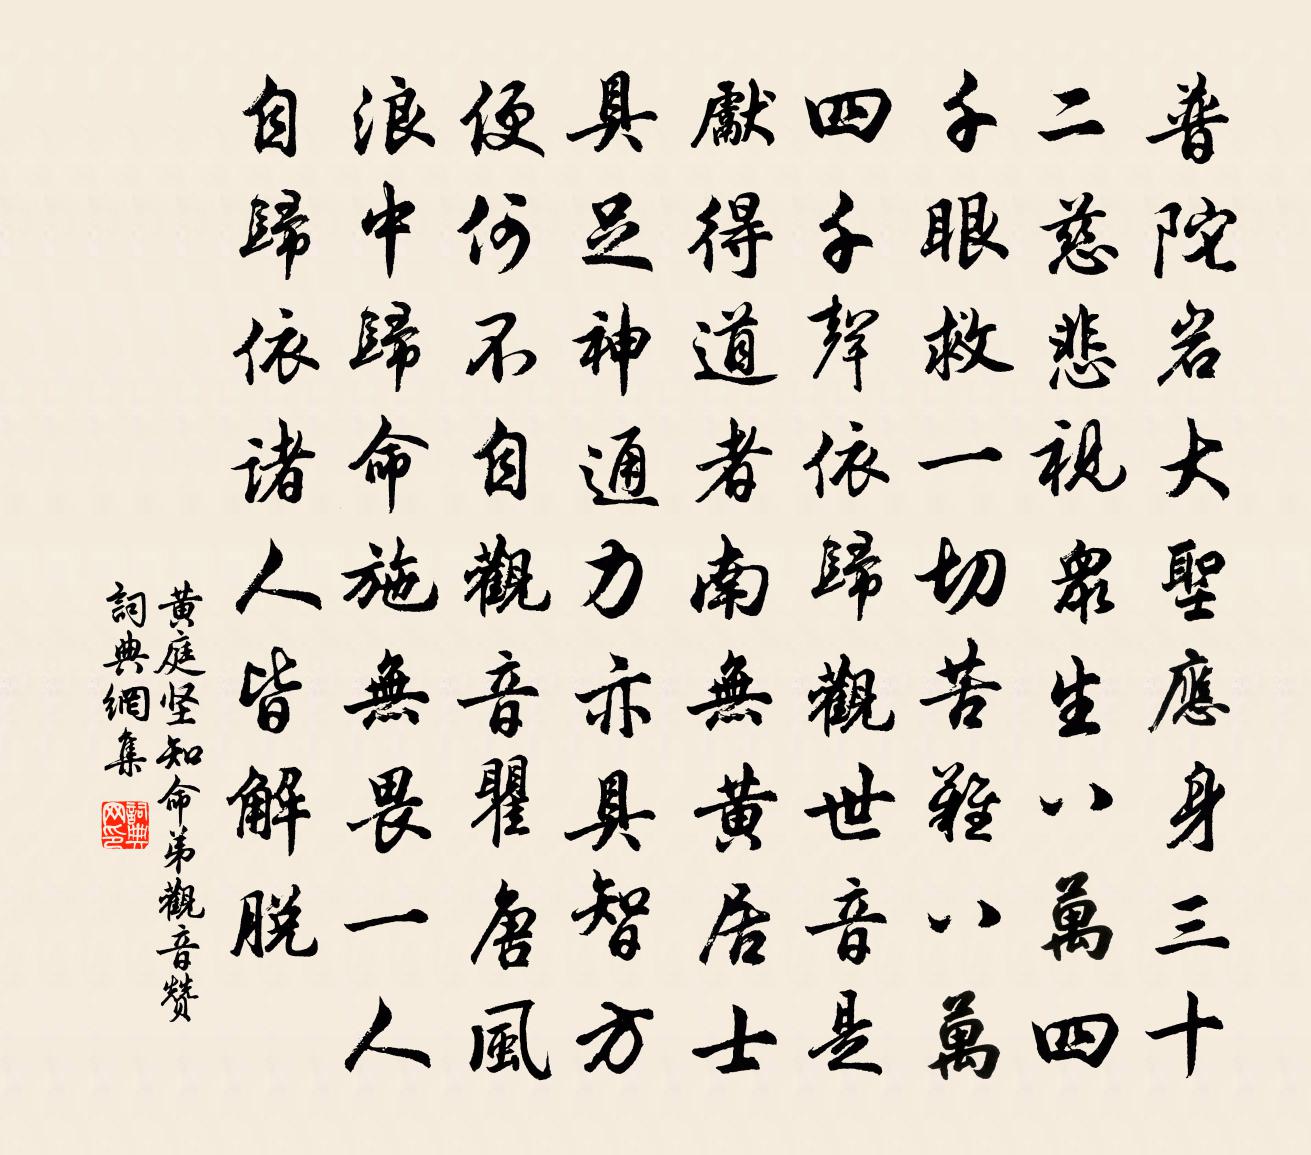 普陀岩大聖應身三十
二慈悲視衆生八萬四
千眼救一切苦難八萬
四千聲依歸觀世音是
獻得道者南無黃居士
具足神通力亦具智方
便何不自觀音瞿唐風
浪中歸命施無畏一人
自歸依诸人皆解脱
黃庭坚知命弟觀音贊
詞典網集
詞典网印